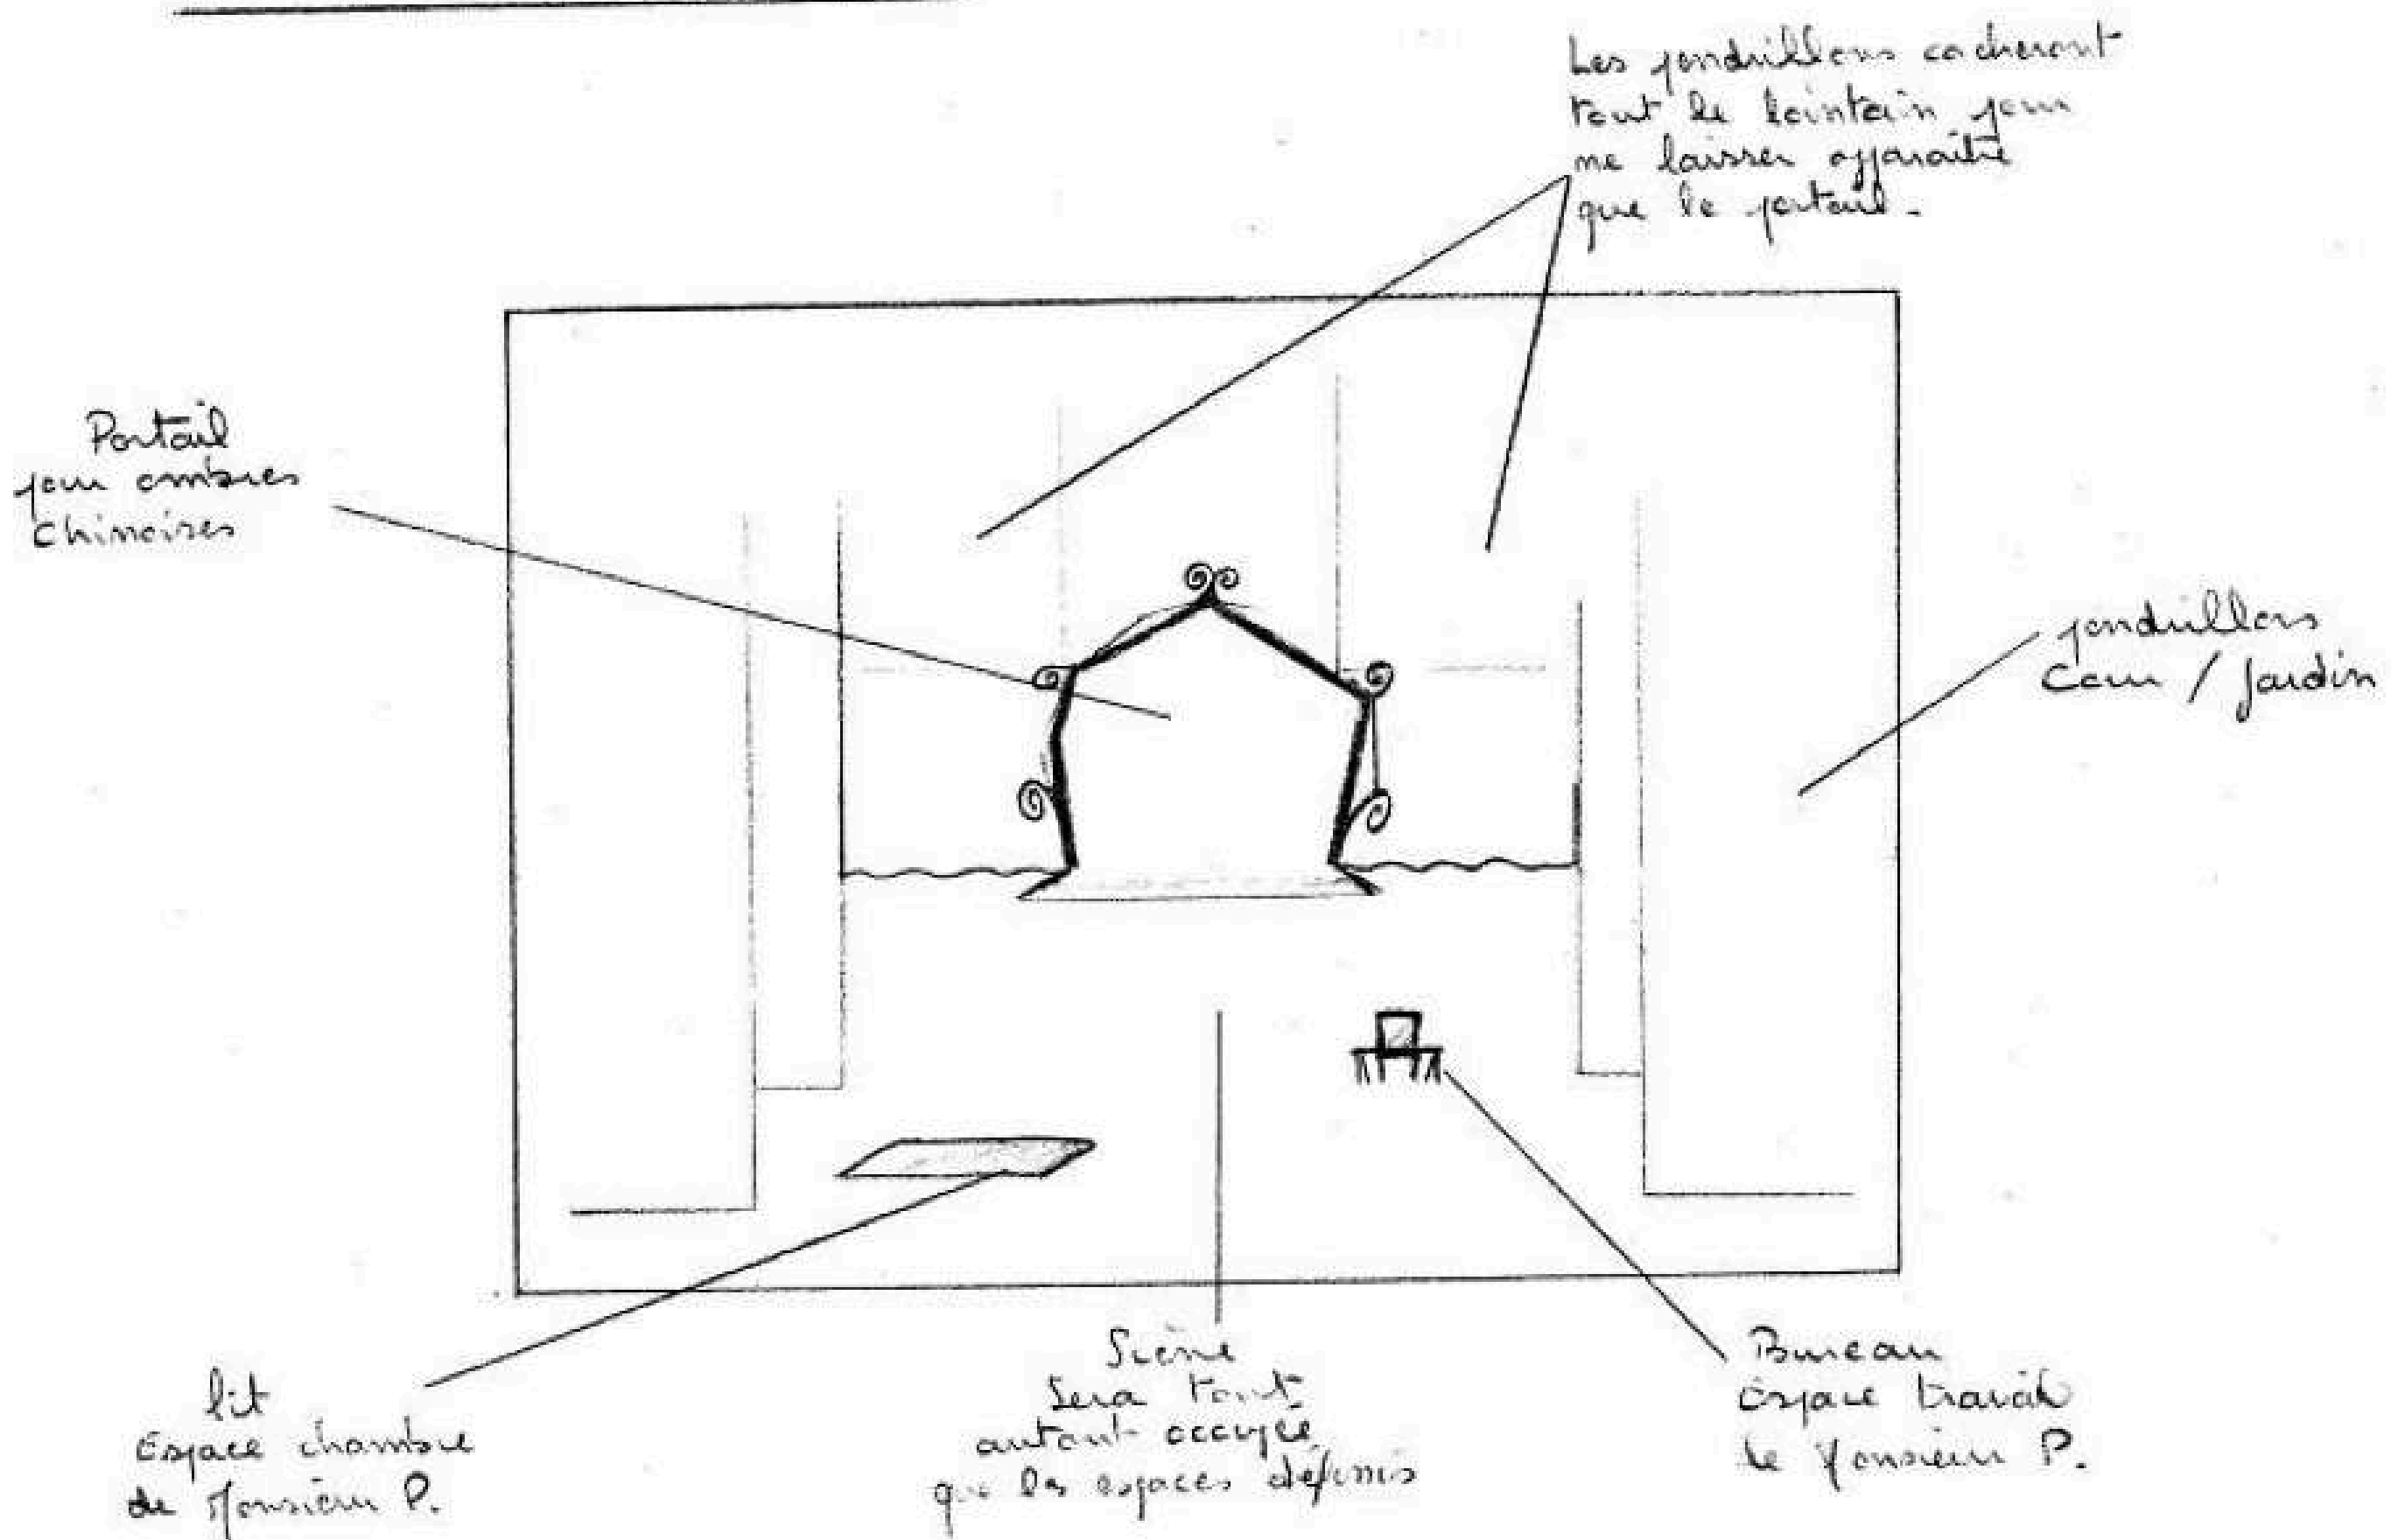 Les pendrillons cacheront
tout le lointain pour
ne laisser apparaître
que le portail.
Portail
pour ombres
Chinoises
pendrillons
Cour / Jardin
lit
Espace chambre
de Monsieur P.
Scène
Sera tout
autant occupée
que les espaces définis
Bureau
Espace travail
de Monsieur P.